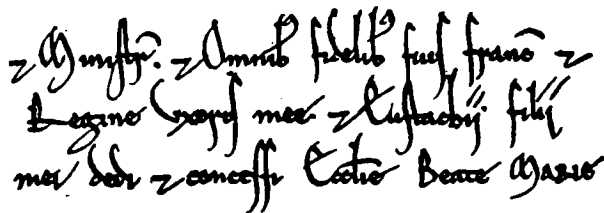 ⁊ Ministr̃. ⁊ Omnib' fidelib' suis franc̃ ⁊
Regine Uxoris mee. ⁊ Eustachij filij
mei dedi ⁊ concessi Eccl̃ie Beate Marie